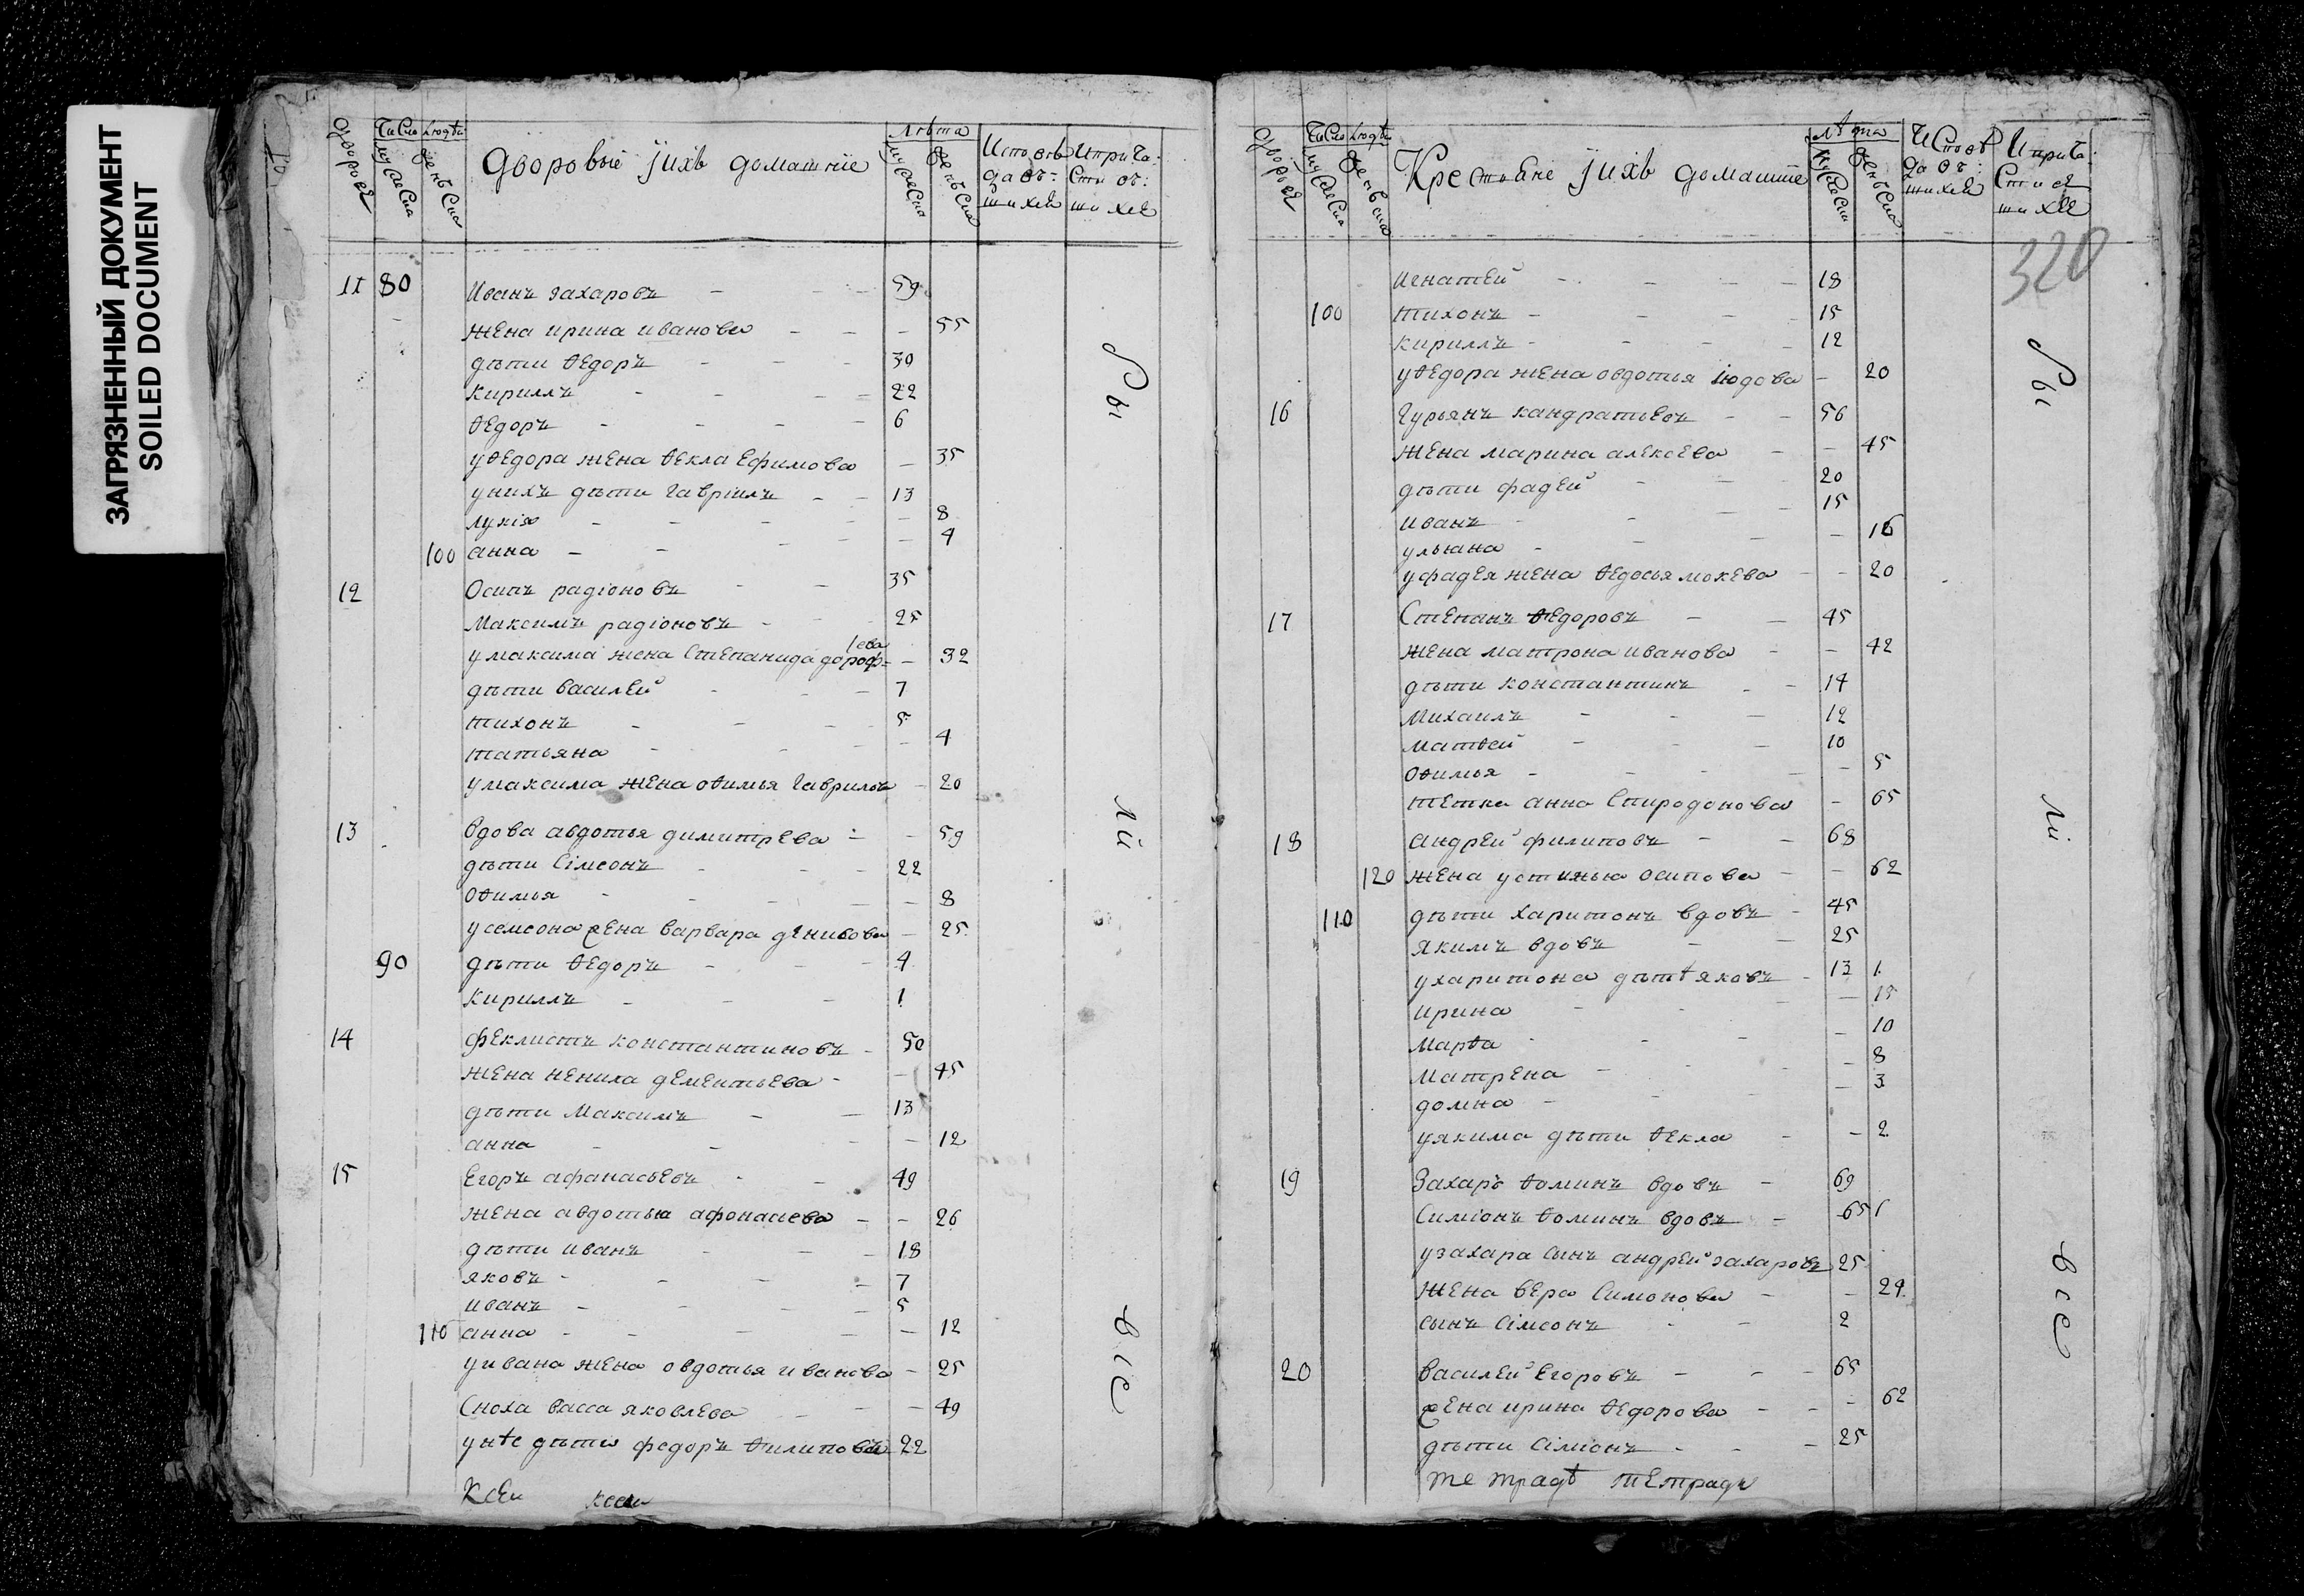 ЗАГРЯЗНЕННЫЙ ДОКУМЕНТ
SOILED DOCUMENT
дворовъ
Число людѣй
мужеска
женъска
Дворовыіе їихъ домашніе
лѣта
мужеска
женъска
Исповѣдавъшихся
И причастившихся
11 80 Иванъ захаровъ - - 59
жена ирина иванова - - - 55
дѣти ѳедоръ - - - 30
кирилъ - - - 22
ѳедоръ - - - 6
уѳедора жена ѳекла Ефимова - 35
унихъ дѣти гавріилъ - - 13
лукія - - - - 8
100 анна - - - - 4
12 Осипъ радіоновъ - - 35
Максимъ радіоновъ - - 25
умаксима жена Степанида дорофѣева - 32
дѣти василей - - - 7
тихонъ - - - 5
татьяна - - - 4
умаксима жена оѳимья гаврилова - 20
13 вдова авдотья димитрева - - 59
дѣти Сімеонъ - - - 22
оѳимья - - - - 8
усемеона жена варвара денисова - 25
90 дѣти ѳедоръ - - - 4
кирилъ - - - 1
14 феклистъ константиновъ - 50
жена ненила дементьева - - 45
дѣти Максимъ - - 13
анна - - - - 12
15 Егоръ афанасьевъ - - 49
жена авдотья афонасева - - 26
дѣти иванъ - - - 18
яковъ - - - - 7
иванъ - - - - 5
110 анна - - - - 12
уивана жена овдотья иванова - 25
Сноха васса яковлева - - - 49
унѣе дѣти федоръ ѳилиповъ 22
дворовъ
Число людѣй
мужеска
женъска
Крестьяне їихъ домашніе
лѣта
мужеска
женъска
Исповѣдавъшихся
И причастившихся
320
игнатей - - - - 18
100 тихонъ - - - - 15
кирилъ - - - - 12
уѳедора жена овдотья іюдова - 20
16 гурьянъ кандратьевъ - - 56
жена марина алексева - - 45
дѣти фадей - - 20
иванъ - - - 15
ульяна - - - 16
уфадея жена ѳедосья мокева - - 20
17 Степанъ ѳедоровъ - - 45
жена матрона иванова - - 42
дѣти константинъ - - 14
михаилъ - - - 12
матѳей - - - 10
оѳимья - - - - 5
тетка анна Спиродонова - 65
18 андрей филиповъ - - 68
120 жена устинья осипова - - 62
110 дѣти харитонъ вдовъ - 45
якимъ вдовъ - - 25
ухаритона дѣтѣ яковъ - 13 1
ирина - - - 15
марѳа - - - - 10
матрена - - - 8
домна - - - - 3
уякима дѣти ѳекла - - 2
19 Захаръ ѳоминъ вдовъ - 69
Симіонъ ѳоминъ вдовъ - 65 1
узахара сынъ андрей захаровъ 25
жена вера Симонова - - 29
сынъ Сімеонъ - - 2
20 василей Егоровъ - - - 65
жена ирина ѳедорова - - - 62
дѣти Сіміонъ - - - 25
тетрадѣ тетрадь
ры
лй
все
ры
лй
все